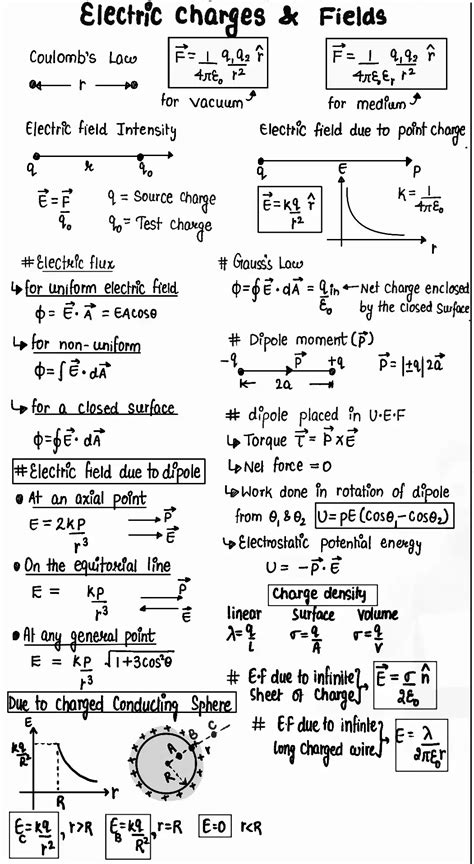 Electric Charges & Fields
Coulomb's Law
r
F⃗ = 1/4πε₀ q₁q₂/r² r̂
for vacuum
F⃗ = 1/4πε₀εᵣ q₁q₂/r² r̂
for medium
Electric field Intensity
q r q₀
E⃗ = F⃗/q₀
q = Source charge
q₀ = Test charge
Electric field due to point charge
q P
E⃗ = kq/r² r̂
E
r
K = 1/4πε₀
# Electric flux
↳ for uniform electric field
ϕ = E⃗·A⃗ = EAcosθ
↳ for non-uniform
ϕ = ∫E⃗·dA⃗
↳ for a closed surface
ϕ = ∮E⃗·dA⃗
# Gauss's Law
ϕ = ∮E⃗·dA⃗ = qin/ε₀ ← Net Charge enclosed
by the closed surface
# Dipole moment (P⃗)
-q P⃗ +q
2a
P⃗ = |±q|2a⃗
# dipole placed in U.E.F
↳ Torque τ⃗ = P⃗xE⃗
↳ Net force = 0
↳ Work done in rotation of dipole
from θ₁ & θ₂ U = pE(cosθ₁-cosθ₂)
↳ Electrostatic potential energy
U = -P⃗·E⃗
# Electric field due to dipole
• At an axial point
E = 2kp/r³ P⃗
E⃗
• On the equitorial line
E = kp/r³ P⃗
E⃗
• At any general point
E = kp/r³ √1+3cos²θ
Charge density
linear surface volume
λ=q/l σ=q/A σ=q/V
# E.f due to infinite
sheet of Charge
E⃗ = σ/2ε₀ n̂
# E.F due to infinte
long charged wire
E = λ/2πε₀r
Due to charged Conducting Sphere
E
kq/R²
R
r
A B C
R r
E_C = kq/r², r>R E_B = kq/R², r=R E=0 r<R